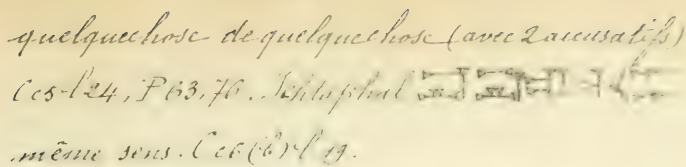 quelquechose de quelquechose (avec 2 accusatifs)
C c5-l 24, P 63,76. Ichtaphal
même sens. C c6 (b)-l 19.